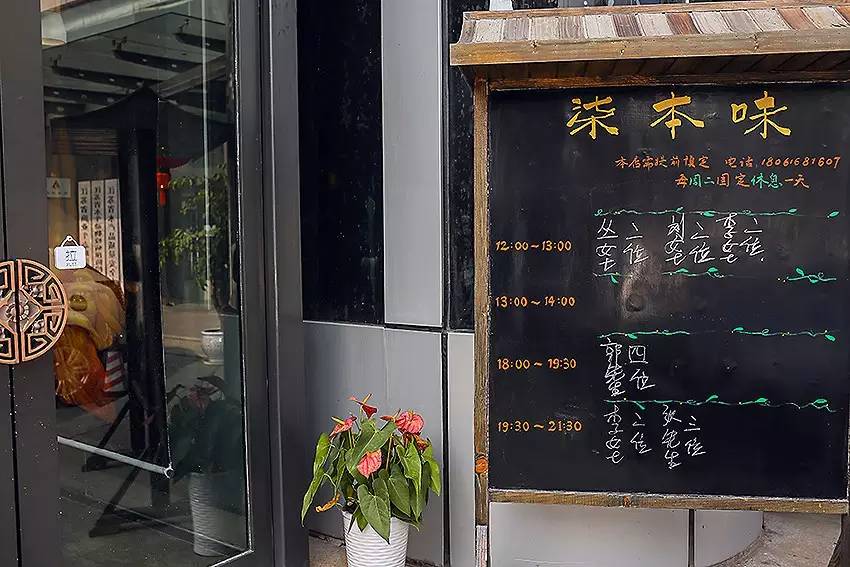 柒本味
本店需提前预定 电话:18061681607
每周二固定休息一天
12:00~13:00
丛女士 二位
刘女士 二位
李女士 二位
13:00~14:00
18:00~19:30
郭先生 四位
19:30~21:30
李女士 二位
张先生 三位
拉